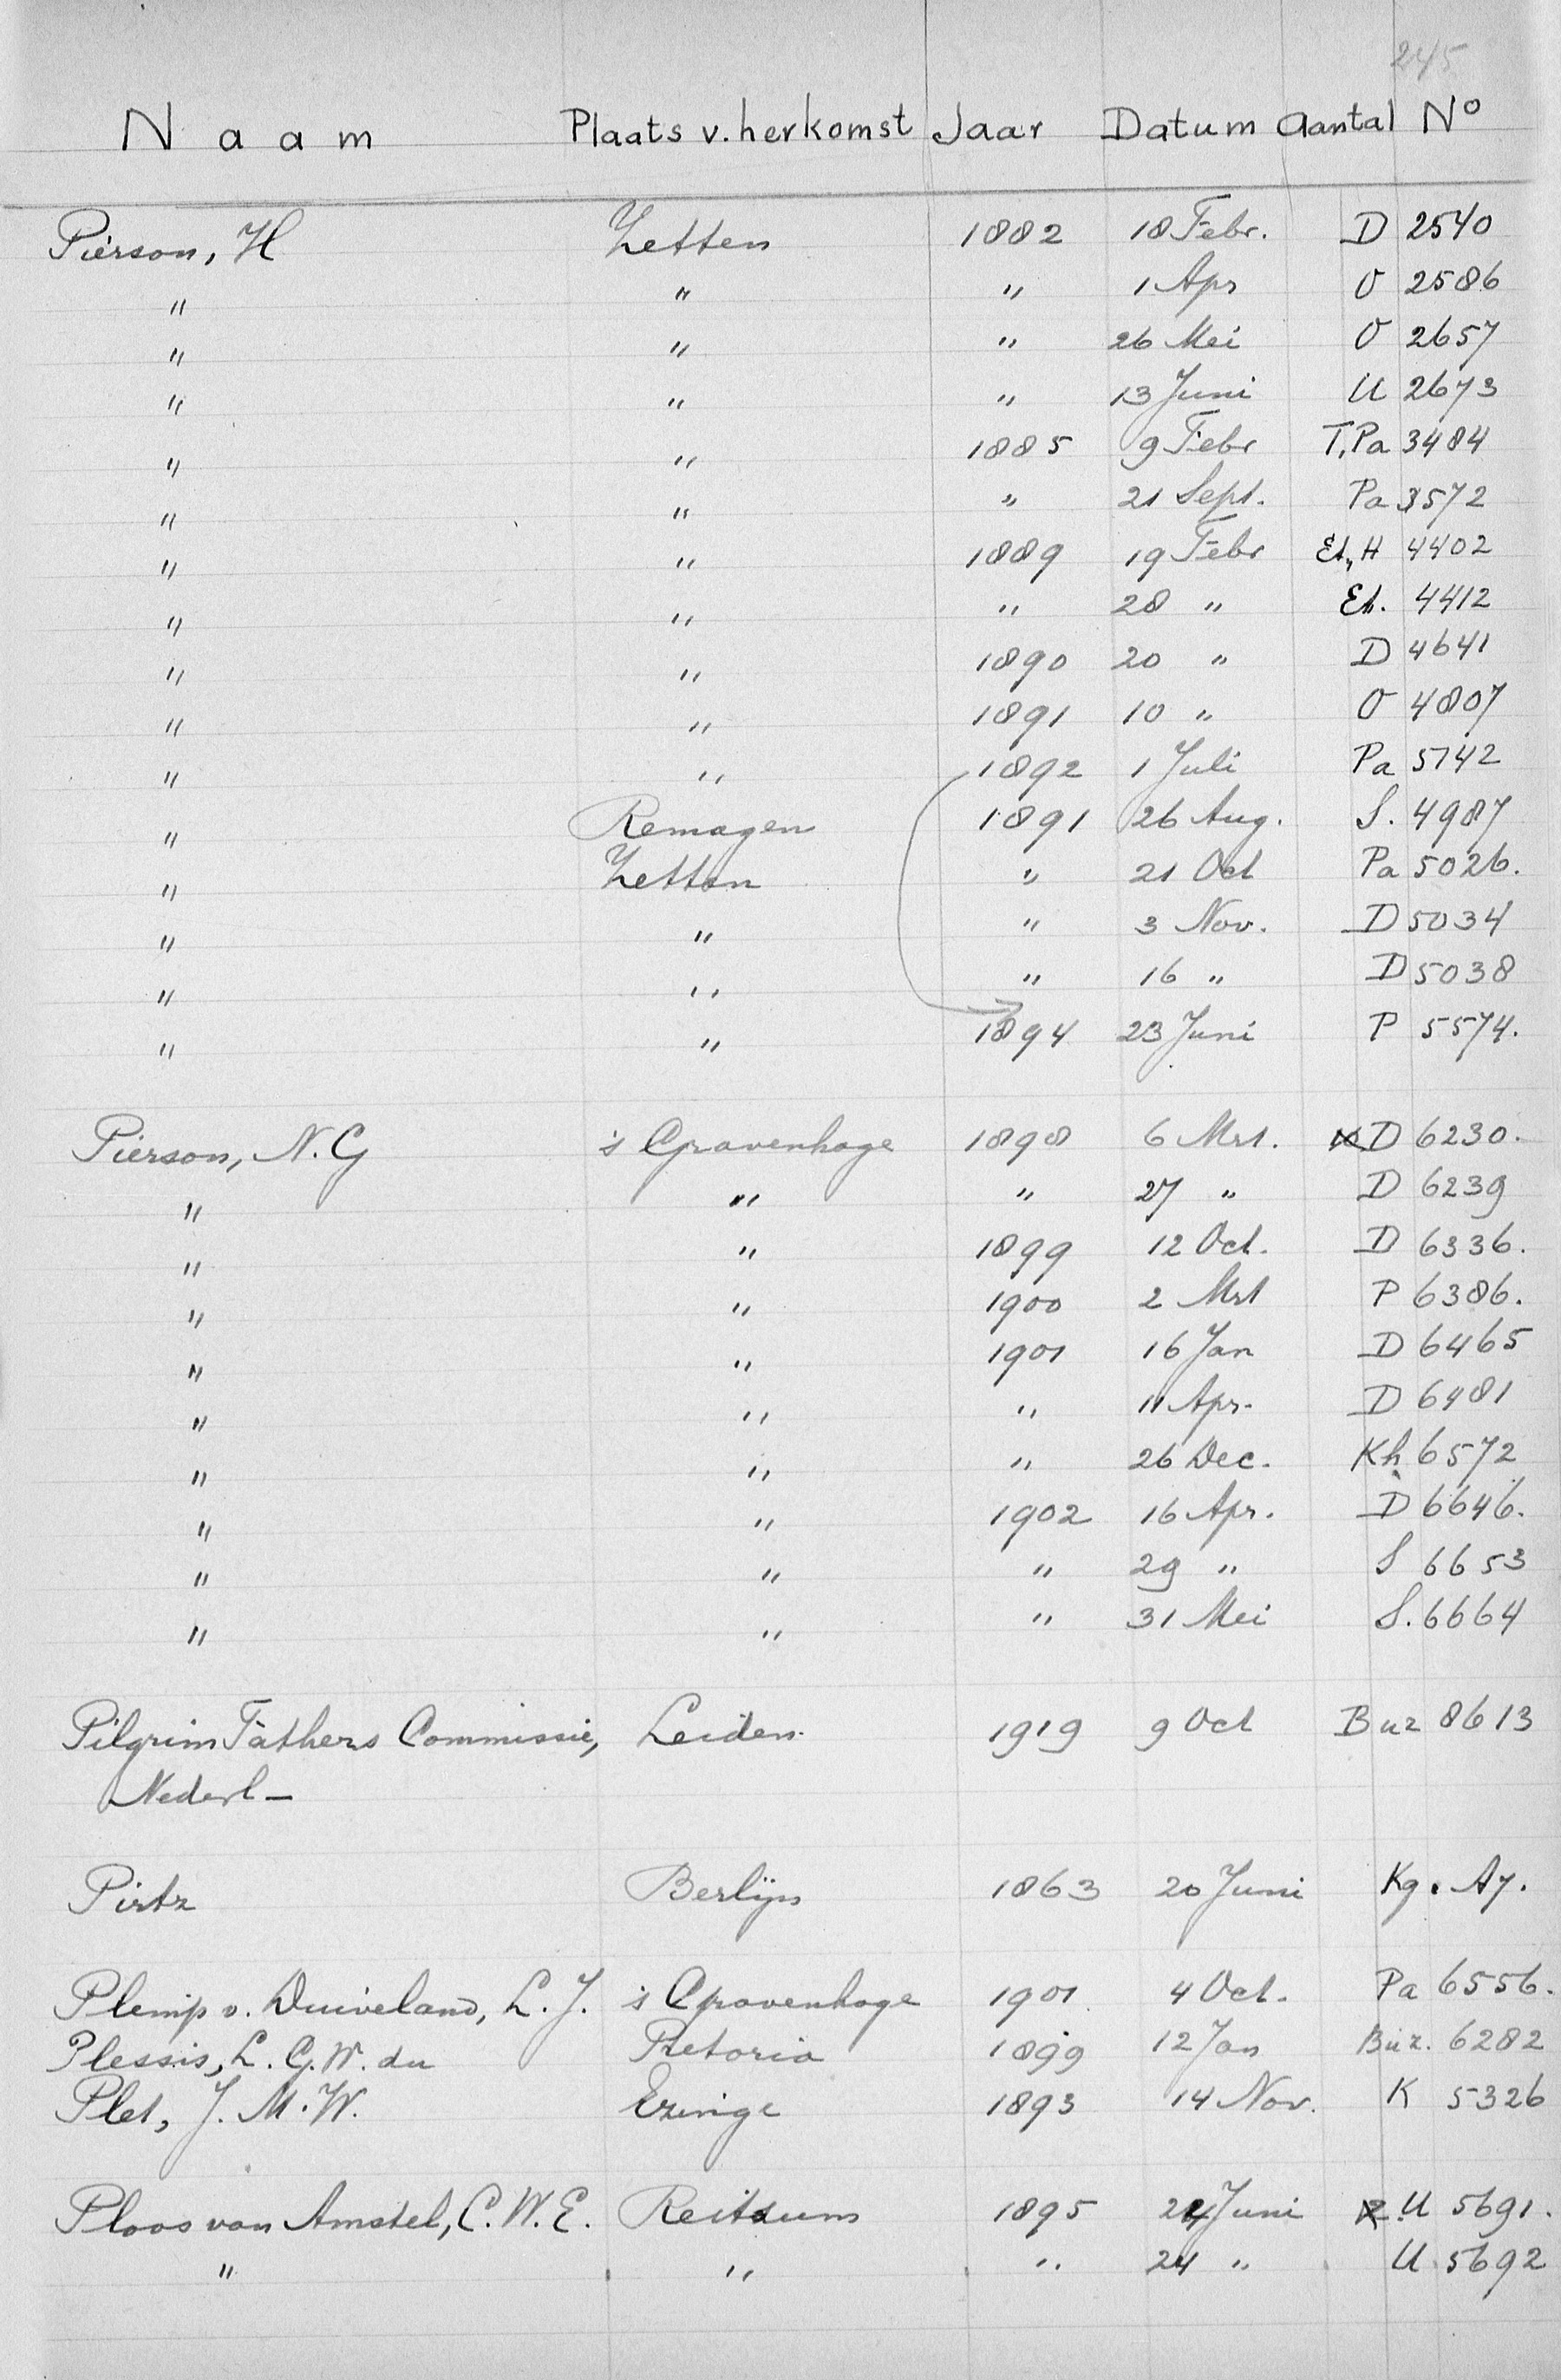 245
Naam Plaats v. herkomst Jaar Datum Aantal No
Pierson, H Zetten 1882 18 Febr. D 2540
" " " 1 Apr O 2586
" " " 26 Mei O 2657
" " " 13 Juni U 2673
" " 1885 9 Febr T, Pa 3484
" " " 21 Sept. Pa 3572
" " 1889 19 Febr Et, H 4402
" " " 28 " Et. 4412
" " 1890 20 " D 4641
" " 1891 10 " O 4807
" " 1892 1 Juli Pa 5142
" Remagen 1891 26 Aug. S. 4987
" Zetten " 21 Oct Pa 5026.
" " " 3 Nov. D 5034
" " " 16 " D 5038
" " 1894 23 Juni P 5574.
Pierson, N. G 's Gravenhage 1898 6 Mrt. D 6230.
" " " 27 " D 6239
" " 1899 12 Oct. D 6336.
" " 1900 2 Mrt P 6386.
" " 1901 16 Jan D 6465
" " " 11 Apr. D 6481
" " " 26 Dec. Kh 6572
" " 1902 16 Apr. D 6646.
" " " 29 " S 6653
" " " 31 Mei S. 6664
Pilgrim Fathers Commissie, Leiden 1919 9 Oct Buz 8613
Nederl -
Pirtz Berlijn 1863 20 Juni Kg. Ay.
Plemp v. Duiveland, L. J. 's Gravenhage 1901 4 Oct. Pa 6556.
Plessis, L. G. W. du Pretoria 1899 12 Jan Buz. 6282
Plet, J. M. W. Ezinge 1893 14 Nov. K 5326
Ploos van Amstel, C. W. E. Reitsum 1895 24 Juni U 5691.
" " " 24 " U 5692